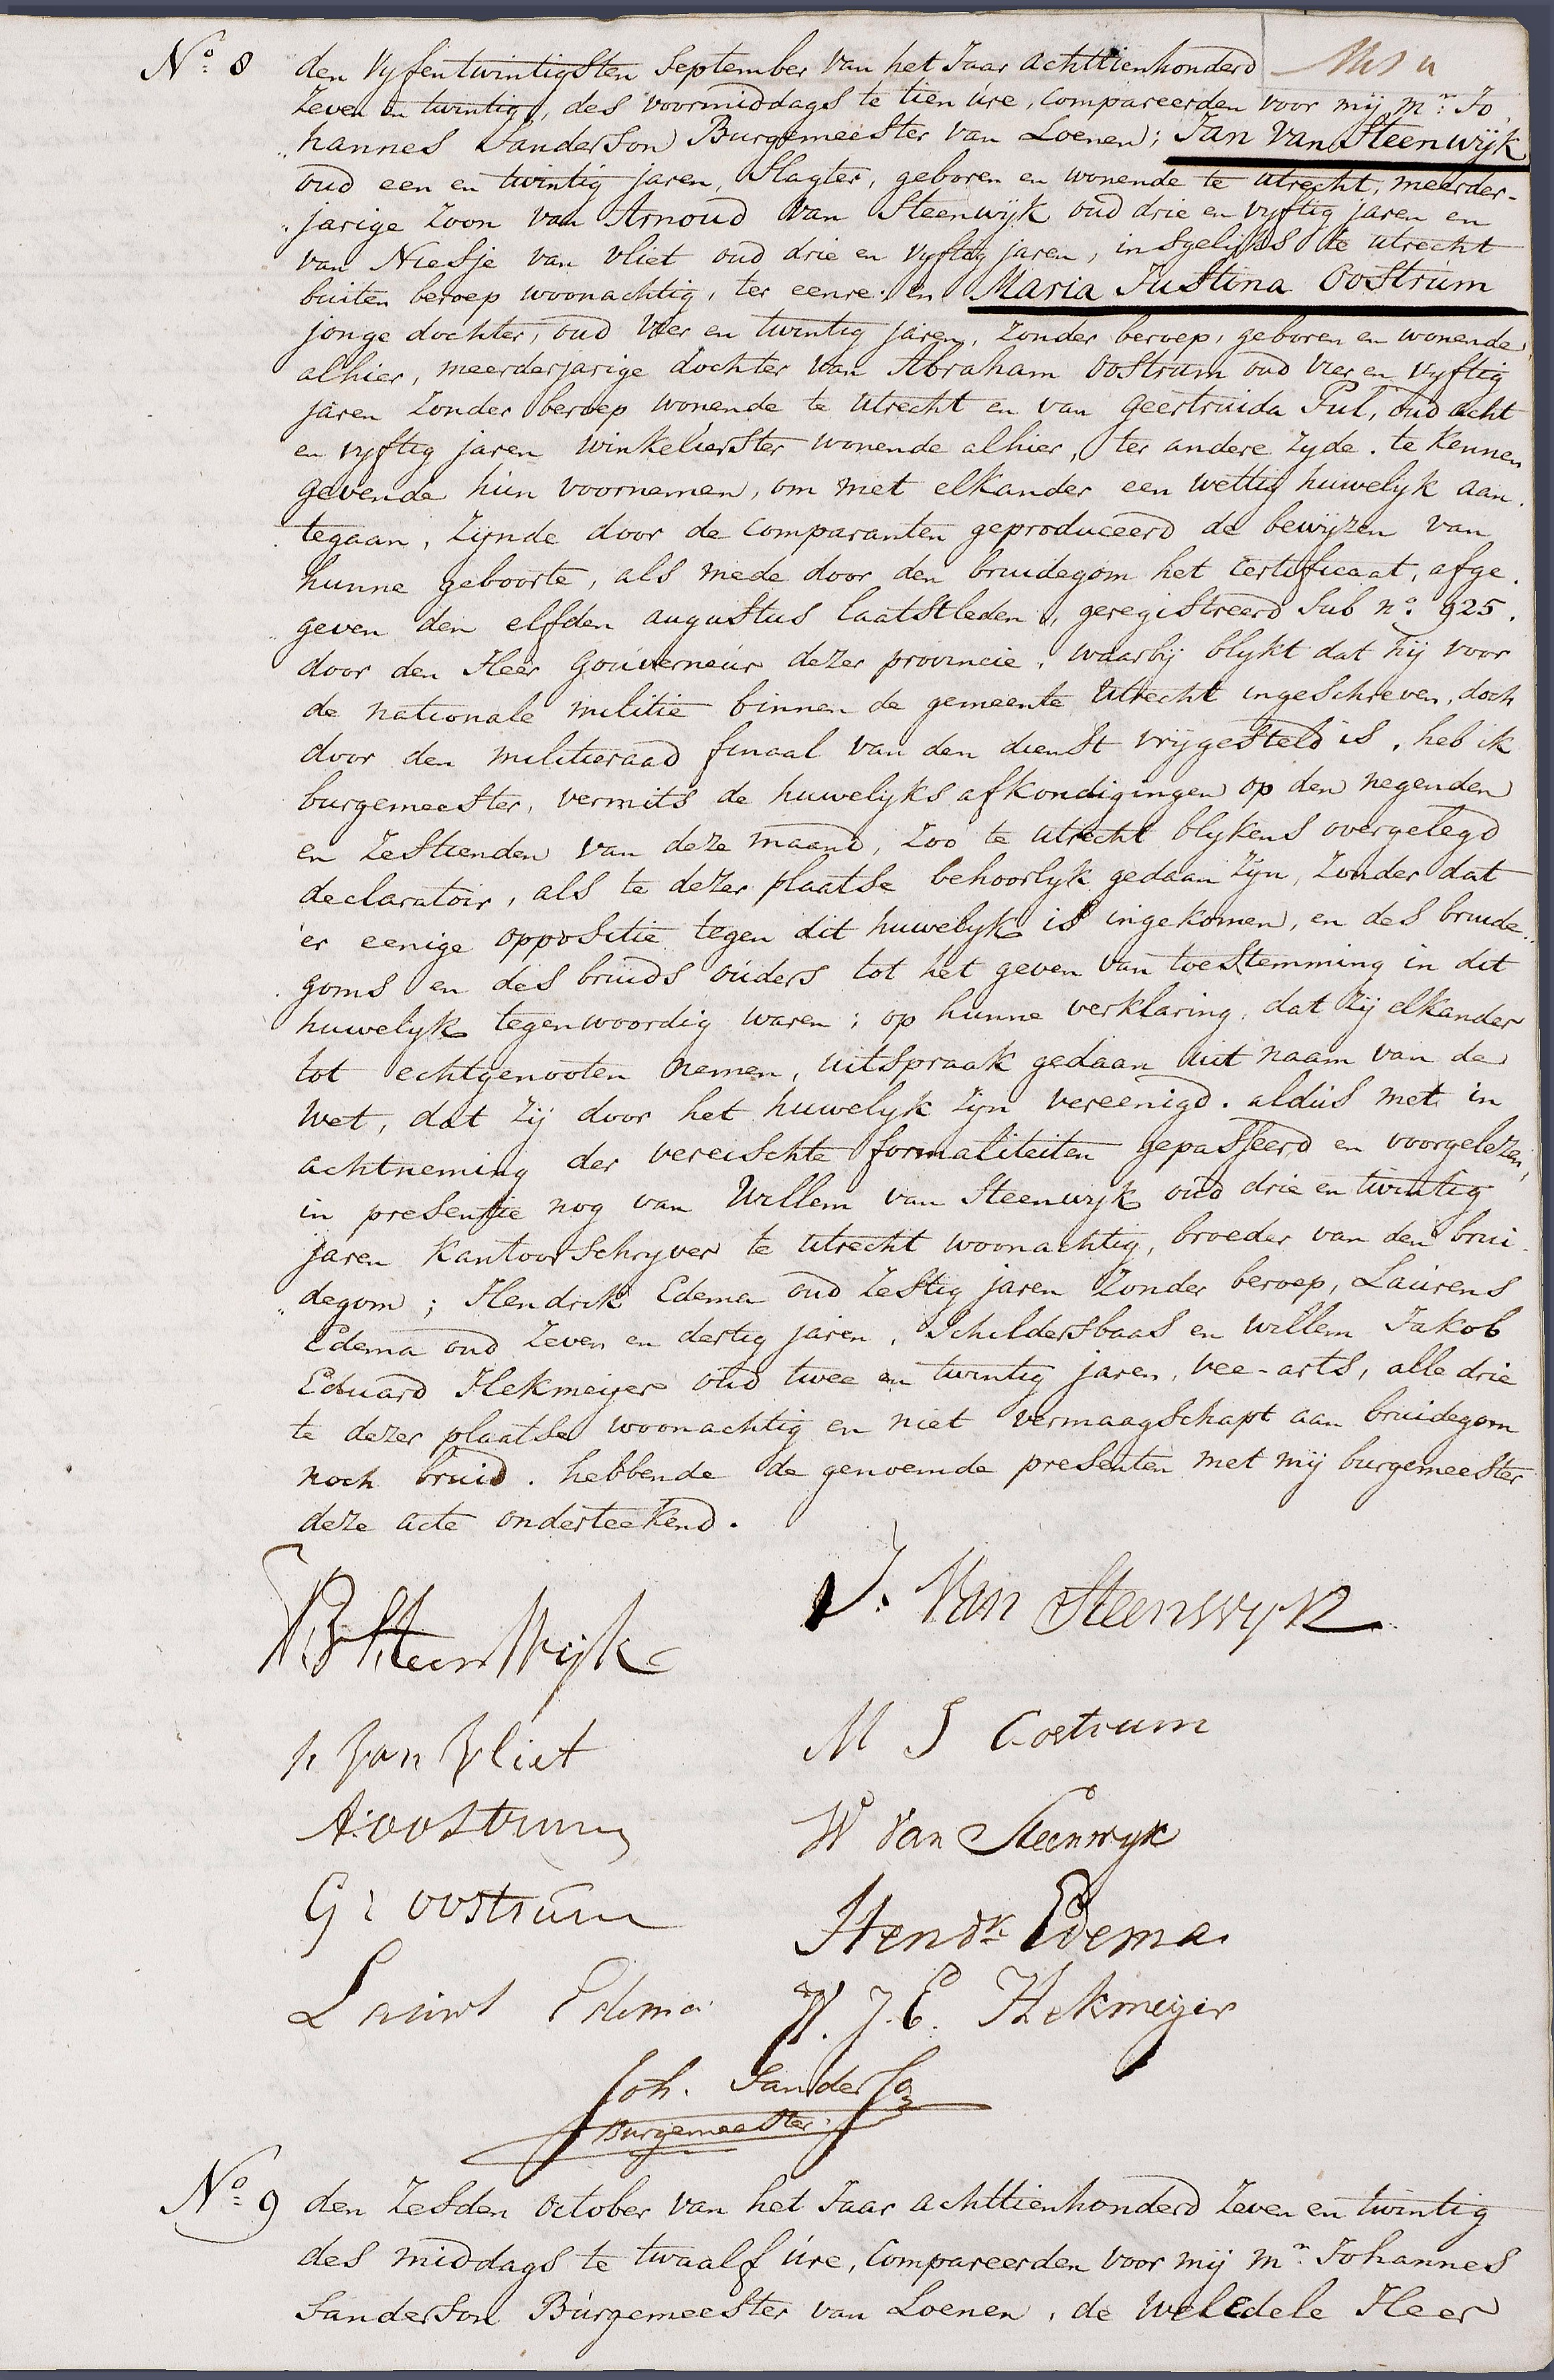 No. 8 den Vyfentwintigsten September van het Jaar achttienhonderd
Zeven en twintig, des voormiddags te tien ure, compareerden voor mij mr. Jo
hannes Sanderson Burgemeester van Loenen; Jan van Steenwijk
oud een en twintig jaren, Slagter, geboren en wonende te Utrecht, meerder-
jarige Zoon van Arnoud van Steenwijk oud drie en vyftig jaren en
van Niesje van Vliet oud drie en vyftig jaren, insgelijks te Utrecht
buiten beroep woonachtig, ter eenre. en Maria Justina Oostrum
jonge dochter, oud vier en twintig jaren, Zonder beroep, geboren en wonende
alhier, meerderjarige dochter van Abraham Oostrum oud vier en vyftig
jaren Zonder beroep wonende te Utrecht en van Geertruida Pul, oud acht
en vyftig jaren winkelierster wonende alhier, ter andere Zyde. te kennen
gevende hun voornemen, om met elkander een wettig huwelyk aan
tegaan, Zijnde door de comparanten geproduceerd de bewijzen van
hunne geboorte, als mede door den bruidegom het certificaat, afge.
geven den elfden augustus laatstleden, geregistreerd Sub no. 925.
door den Heer Gouverneur dezer provincie, waarbij blykt dat hij voor
de nationale militie binnen de gemeente Utrecht ingeschreven, doch
door den militieraad finaal van den dienst vrijgesteld is, heb ik
burgemeester, vermits de huwelijks afkondigingen op den negenden
en Zestienden van deze maand, Zoo te Utrecht blykens overgelegd
declaratoir, als te dezer plaatse behoorlyk gedaan Zyn, Zonder dat
er eenige oppositie tegen dit huwelyk is ingekomen, en des bruide..
goms en des bruids ouders tot het geven van toestemming in dit
huwelijk tegenwoordig waren; op hunne verklaring, dat Zij elkander
tot echtgenooten nemen, uitspraak gedaan uit naam van de
Wet, dat Zij door het huwelyk Zyn vereenigd. aldus met in
achtneming der vereischte formaliteiten gepasseerd en voorgelezen,
in presentie nog van Willem van Steenwijk oud drie en twintig
jaren Kantoorschryver te Utrecht woonachtig, broeder van den brui.
degom; Hendrik Edema oud Zestig jaren Zonder beroep, Laurens
Edema oud Zeven en dertig jaren, Schildersbaas en Willem Jakob
Eduard Hekmeijer oud twee en twintig jaren, vee-arts, alle drie
te dezer plaatse woonachtig en niet vermaagschapt aan bruidegom
noch bruid. hebbende de genoemde presenten met mij burgemeester
deze acte onderteekend.
Steenwijk
J. Van Steenwyk
n van Vliet
M J Oostrum
A: oostrum
W Van Steenwyk
G: oostrum
Hendk. Edema
Laurens Edema
W. J. E. Hekmeijer
Joh. Sanderson
Burgemeester.
No. 9 den Zesden October van het Jaar achttienhonderd Zeven en twintig
des middags te twaalf ure, Compareerden voor mij mr. Johannes
Sanderson Burgemeester van Loenen, de WelEdele Heer